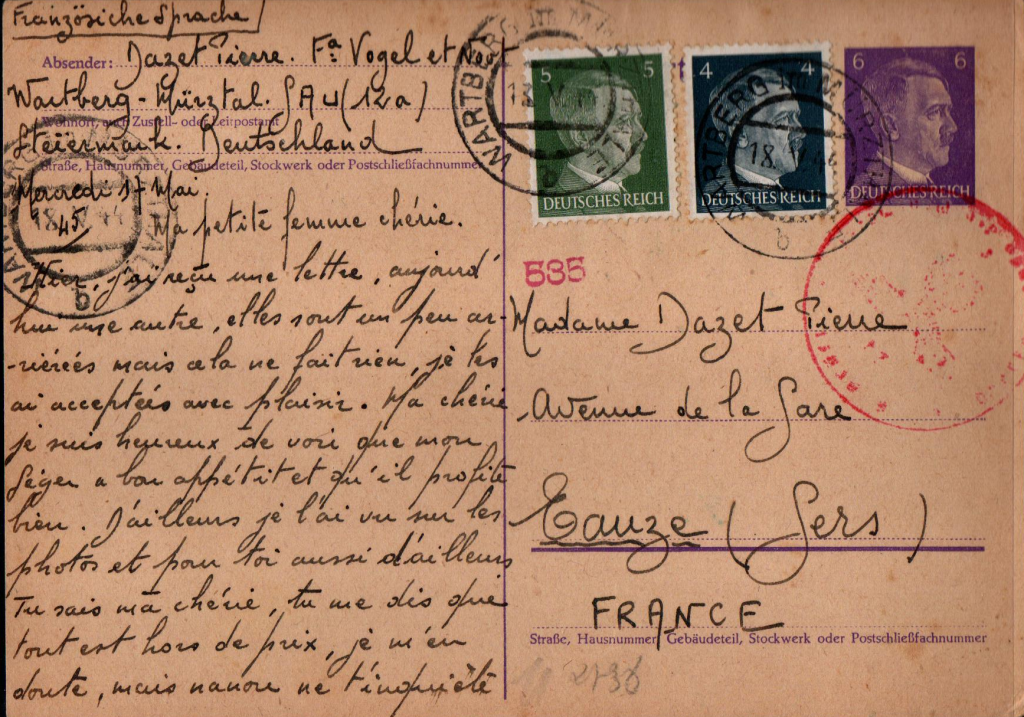 Französiche Sprache
Absender: Dazet Pierre. Fa Vogel et Noot
Wartberg-Mürztal. SAU (12a)
Wohnort, auch Zustell- oder Leitpostamt
Steiermark. Deutschland
Straße, Hausnummer, Gebäudeteil, Stockwerk oder Postschließfachnummer
Mercredi 17 Mai.
45
Ma petite femme chérie.
Hier, j'ai reçu une lettre, aujourd'
hui une autre, elles sont un peu ar-
-riérées mais cela ne fait rien, je les
ai acceptées avec plaisir. Ma chérie
je suis heureux de voir que mon
a bon appétit et qu'il profite
bien. D'ailleurs je l'ai vu sur les
photos et pour toi aussi d'ailleurs
Tu sais ma chérie, tu me dis que
tout est hors de prix, je m'en
doute, mais nanou ne t'inquiète
5 5
DEUTSCHES REICH
4 4
DEUTSCHES REICH
6 6
DEUTSCHES REICH
WARTBERG im MÜRZTALE
b
WARTBERG im MÜRZTALE
18.V.
b
18.V.44
b
535
Madame Dazet Pierre
Avenue de la Gare
Eauze (Gers)
FRANCE
Straße, Hausnummer, Gebäudeteil, Stockwerk oder Postschließfachnummer